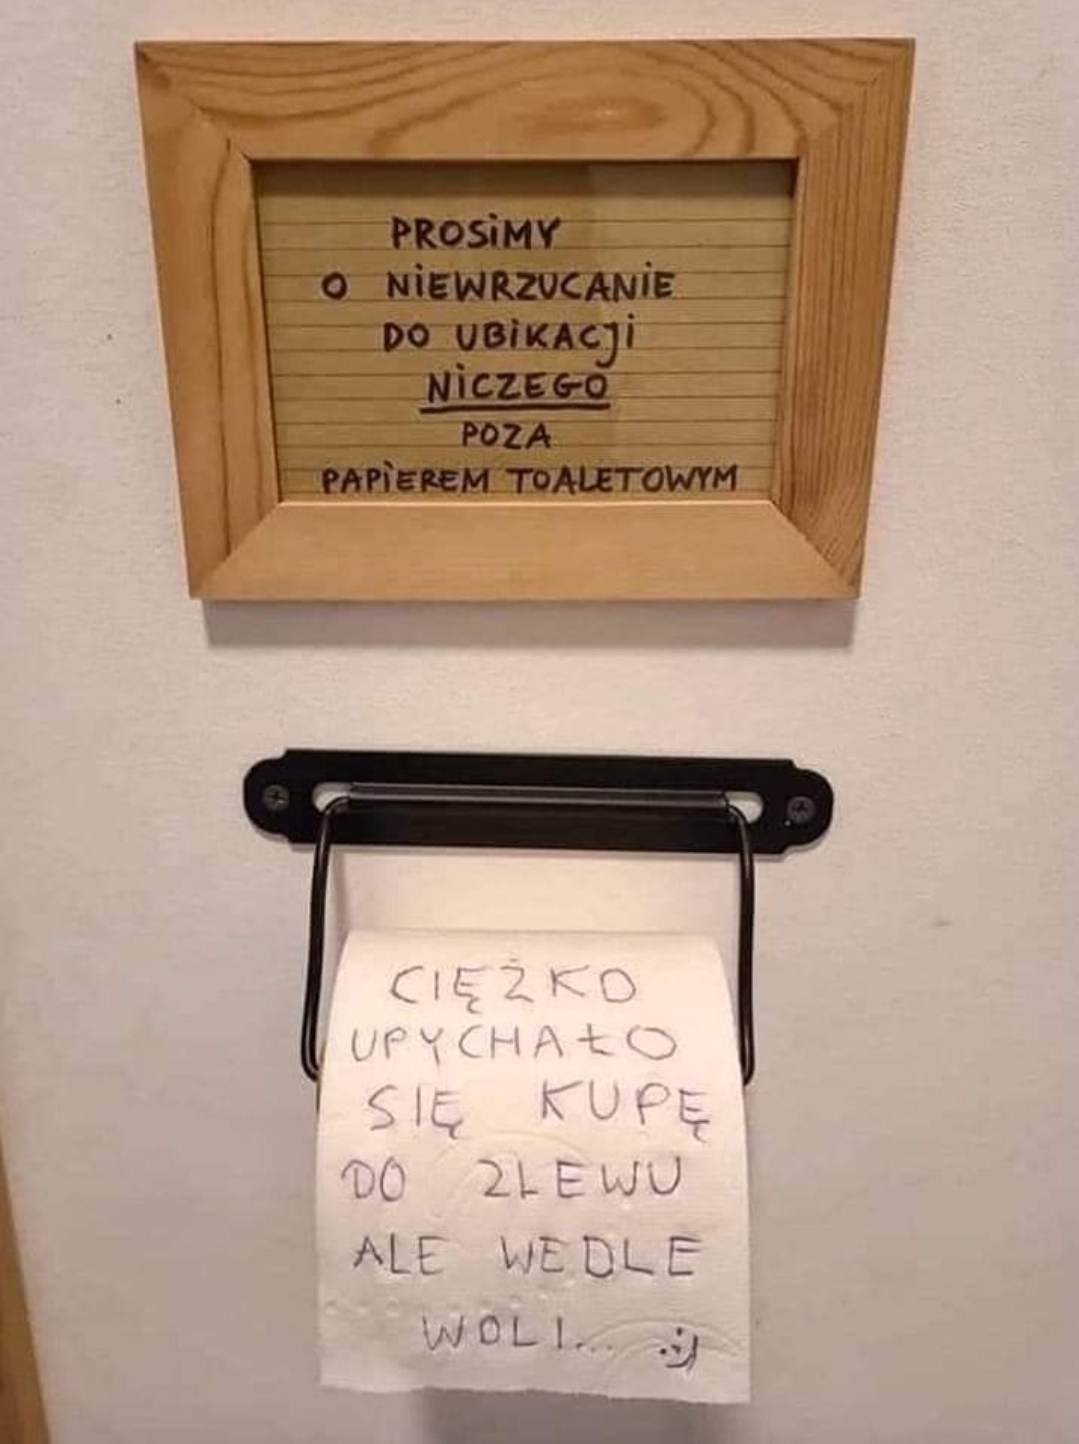 PROSiMY
O NiEWRZUCANiE
DO UBiKACJi
NiCZEGO
POZA
PAPiEREM TOALETOWYM
CIĘŻKO
UPYCHAŁO
SIĘ KUPĘ
DO ZLEWU
ALE WEDLE
WOLI... :)